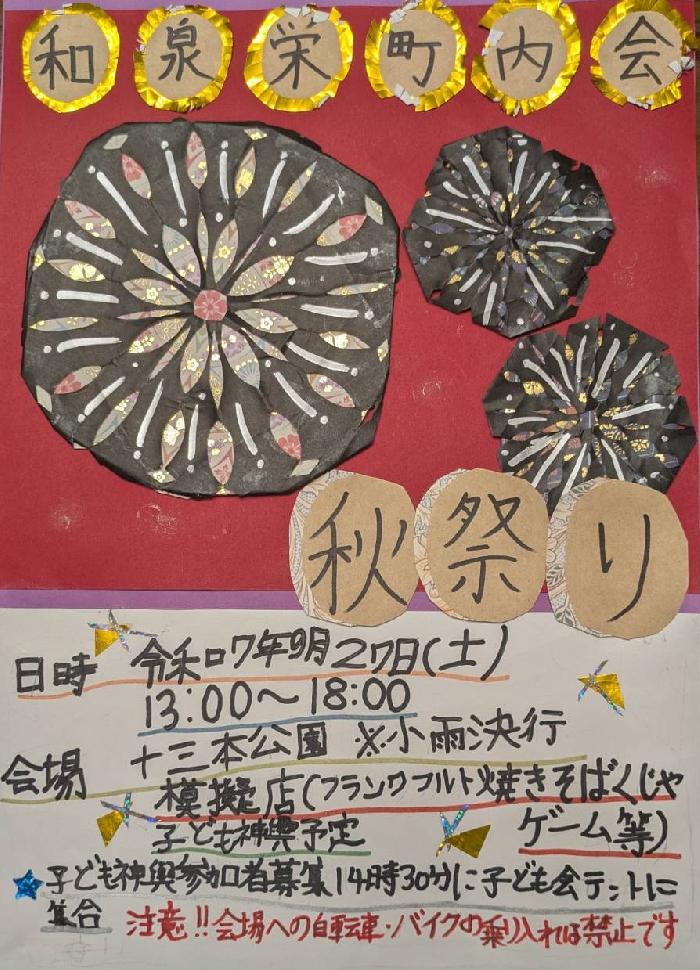 和泉栄町内会
秋祭り
日時 令和7年9月27日(土)
13:00～18:00
会場 十三本公園 ※小雨決行
模擬店(フランクフルト焼きそばくじゃ
ゲーム等)
子ども神輿予定
★子ども神輿参加者募集14時30分に子ども会テントに
集合
注意!!会場への自転車・バイクの乗り入れは禁止です